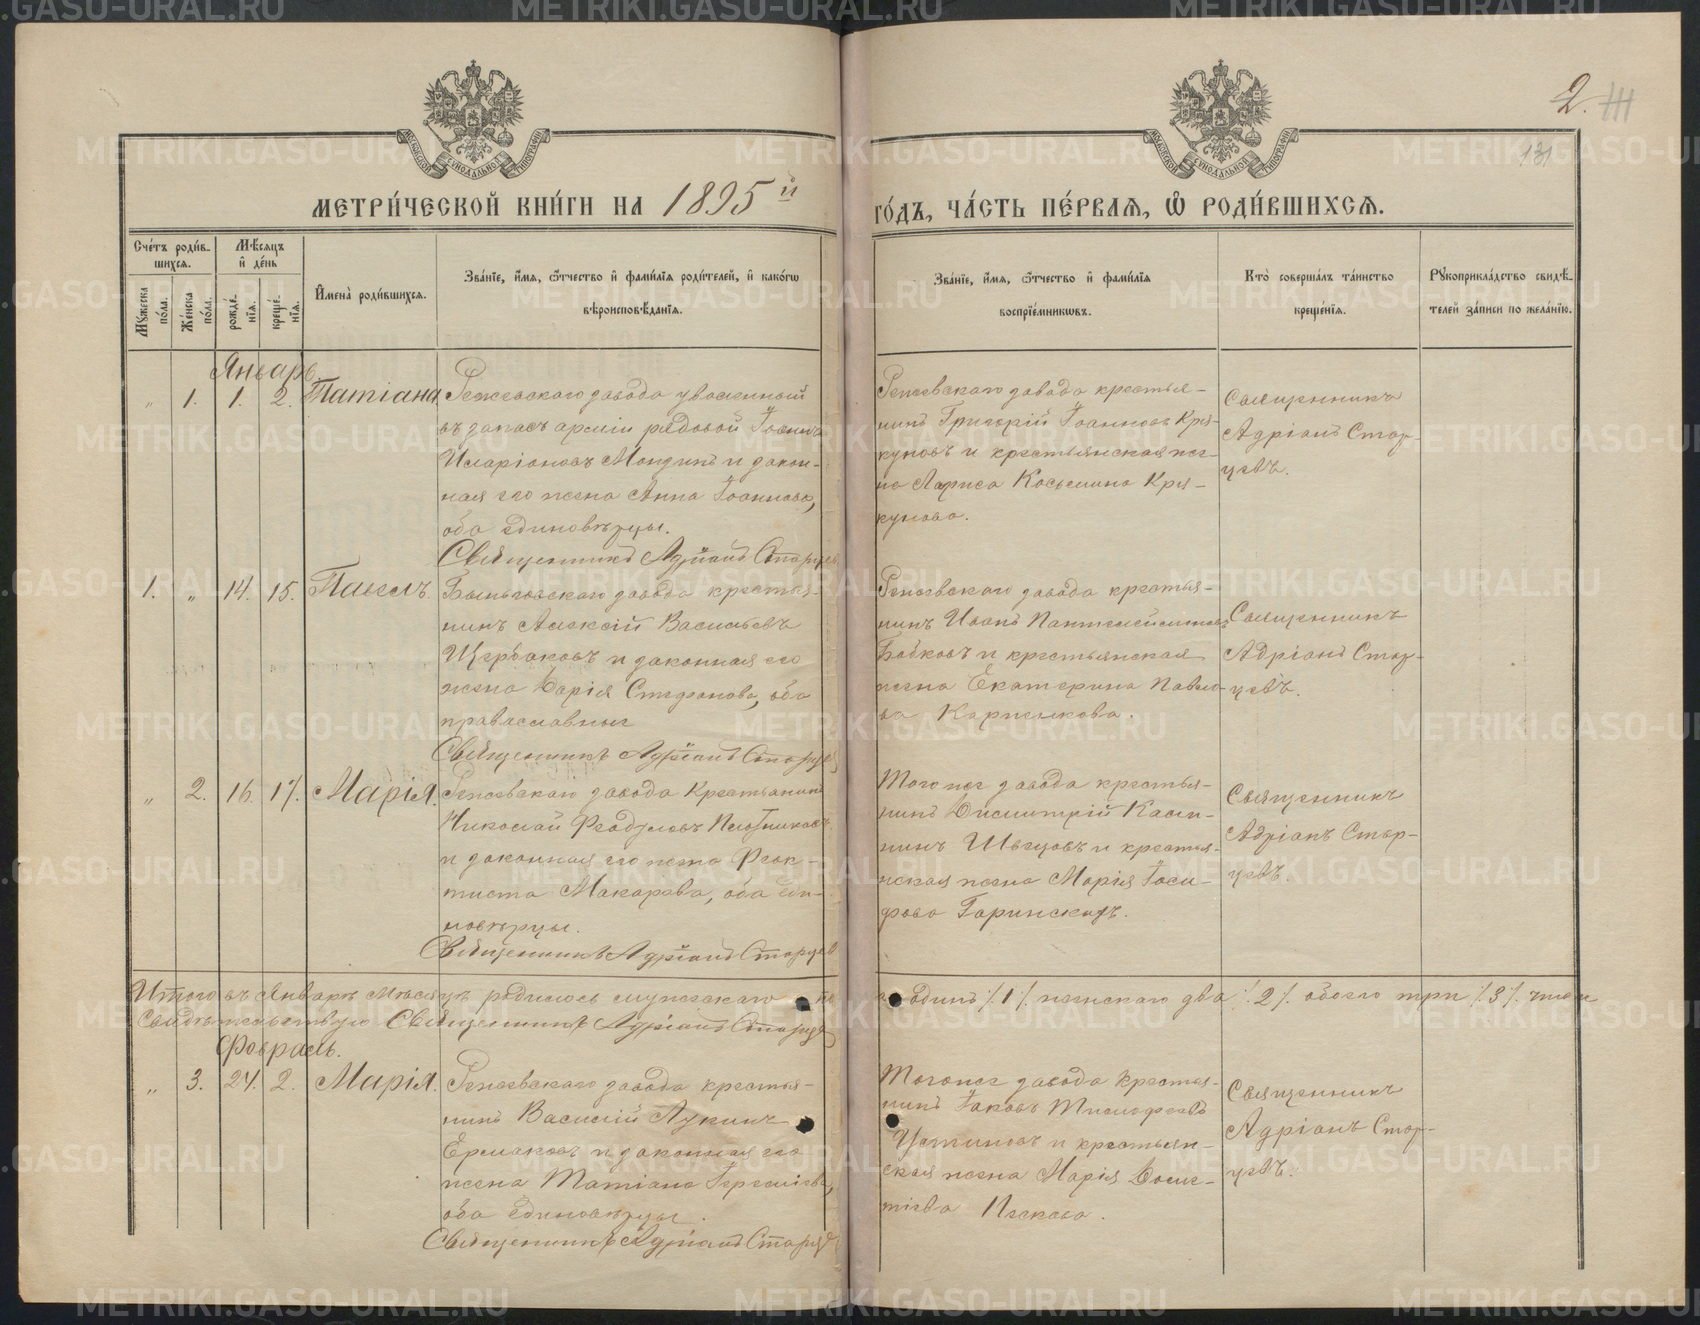 METRIKI.GASO-URAL.RU
2.
131
МОСКОВСКОЙ СѴНОДАЛЬНОЙ ТИПОГРАФІИ
МОСКОВСКОЙ СѴНОДАЛЬНОЙ ТИПОГРАФІИ
МЕТРИ́ЧЕСКОЙ КНИ́ГИ НА 1895й
ГО́ДЪ, ЧА́СТЬ ПЕ́РВАѦ, Ѡ РОДИ́ВШИХСѦ.
Сче́тъ роди́в-
шихся.
Мѣ́сяцъ
и҆ де́нь
Мꙋжеска по́ла.
Же́нска по́ла.
рожде́-
нїѧ.
креще́-
нїѧ.
И҆мена̀ роди́вшихсѧ.
Зва́нїе, и҆́мѧ, ѻ҆́тчество и҆ фами́лїѧ роди́телей, и҆ како́гѡ
вѣроисповѣ́данїѧ.
Зва́нїе, и҆́мѧ, ѻ҆́тчество и҆ фами́лїѧ
воспрїе́мникѡвъ.
Кто̀ соверша́лъ та́инство
креще́нїѧ.
Рꙋкоприкла́дство свидѣ́-
телей за́писи по жела́нїю.
Январь.
„ 1. 1. 2. Татіана
Режевскаго завода уволенный
въ запасъ арміи рядовой Іоаннъ
Иларіоновъ Мокинъ и закон-
ная его жена Анна Іоаннова,
оба единовѣрцы.
Священникъ Адріанъ Старцев
Режевскаго завода крестья-
нинъ Григорій Іоанновъ Кря-
куновъ и крестьянская же-
на Лариса Косьмина Кря-
кунова.
Священникъ
Адріанъ Стар-
цевъ.
1. „ 14. 15. Павелъ.
Быньговскаго завода крестья-
нинъ Алексій Васильевъ
Щербаковъ и законная его
жена Марія Стефанова, оба
православные
Священникъ Адріанъ Старцев
Режевскаго завода крестья-
нинъ Иванъ Пантелеймоновъ
Бобковъ и крестьянская
жена Екатерина Павло-
ва Карженкова.
Священникъ
Адріанъ Стар-
цевъ.
„ 2. 16. 17. Марія.
Режевскаго завода Крестьянинъ
Николай Феодуловъ Плотниковъ
и законная его жена Феок-
тиста Макарова, оба еди-
новѣрцы.
Священникъ Адріанъ Старцев
Того же завода крестья-
нинъ Димитрій Касья-
нинъ Швецовъ и крестья-
нская жена Марія Іоси-
фова Гаринскихъ.
Священникъ
Адріанъ Стар-
цевъ.
Итого въ Январѣ мѣсяцѣ родилось мужескаго по
одинъ /1/ женскаго два /2/ обоего три /3/ чело
Свидѣтельствую Священникъ Адріанъ Старцев
Февраль.
„ 3. 24. 2. Марія.
Режевскаго завода крестья-
нинъ Василій Лукинъ
Ермаковъ и законная его
жена Татіана Іереміева,
оба единовѣрцы.
Священникъ Адріанъ Старцев
Того же завода крестья-
нинъ Іаковъ Тимофеевъ
Устиновъ и крестьян-
ская жена Марія Доме-
тіева Пескова.
Священникъ
Адріанъ Стар-
цевъ.